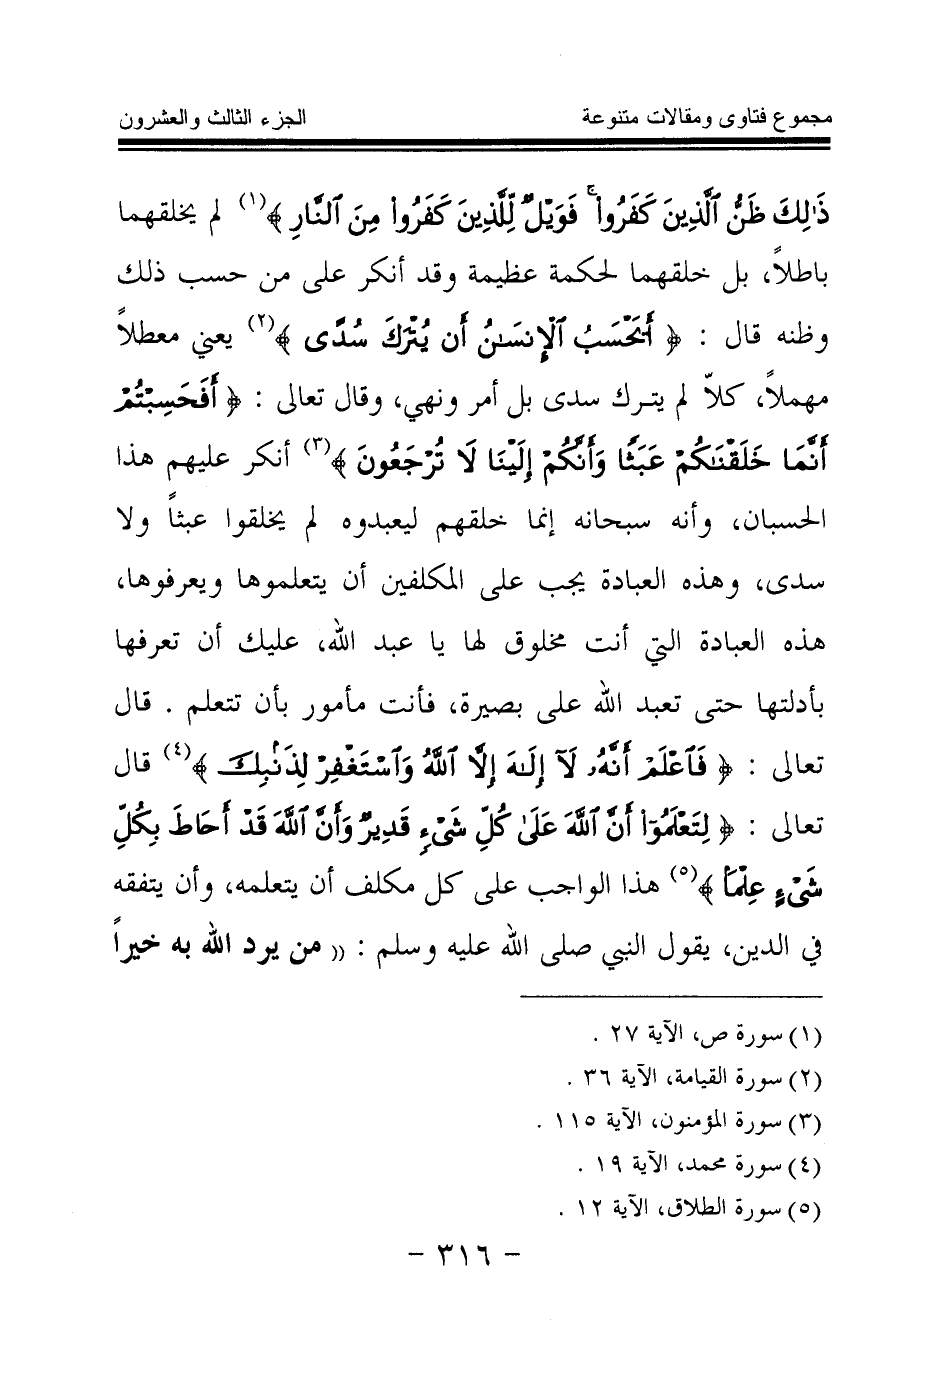 مجموع فتاوى ومقالات متنوعة الجزء الثالث والعشرون
ذَٰلِكَ ظَنُّ ٱلَّذِينَ كَفَرُوا۟ ۚ فَوَيْلٌ لِّلَّذِينَ كَفَرُوا۟ مِنَ ٱلنَّارِ ﴾(١) لم يخلقهما
باطلاً، بل خلقهما لحكمة عظيمة وقد أنكر على من حسب ذلك
وظنه قال : ﴿ أَيَحْسَبُ ٱلْإِنسَـٰنُ أَن يُتْرَكَ سُدًى ﴾(٢) يعني معطلاً
مهملاً، كلاّ لم يترك سدى بل أمر ونهي، وقال تعالى : ﴿ أَفَحَسِبْتُمْ
أَنَّمَا خَلَقْنَـٰكُمْ عَبَثًا وَأَنَّكُمْ إِلَيْنَا لَا تُرْجَعُونَ ﴾(٣) أنكر عليهم هذا
الحسبان، وأنه سبحانه إنما خلقهم ليعبدوه لم يخلقوا عبثاً ولا
سدى، وهذه العبادة يجب على المكلفين أن يتعلموها ويعرفوها،
هذه العبادة التي أنت مخلوق لها يا عبد الله، عليك أن تعرفها
بأدلتها حتى تعبد الله على بصيرة، فأنت مأمور بأن تتعلم . قال
تعالى : ﴿ فَٱعْلَمْ أَنَّهُۥ لَآ إِلَـٰهَ إِلَّا ٱللَّهُ وَٱسْتَغْفِرْ لِذَنۢبِكَ ﴾(٤) قال
تعالى : ﴿ لِتَعْلَمُوٓا۟ أَنَّ ٱللَّهَ عَلَىٰ كُلِّ شَىْءٍ قَدِيرٌ وَأَنَّ ٱللَّهَ قَدْ أَحَاطَ بِكُلِّ
شَىْءٍ عِلْمًا ﴾(٥) هذا الواجب على كل مكلف أن يتعلمه، وأن يتفقه
في الدين، يقول النبي صلى الله عليه وسلم : (( من يرد الله به خيراً
(١) سورة ص، الآية ٢٧ .
(٢) سورة القيامة، الآية ٣٦ .
(٣) سورة المؤمنون، الآية ١١٥ .
(٤) سورة محمد، الآية ١٩ .
(٥) سورة الطلاق، الآية ١٢ .
- ٣١٦ -